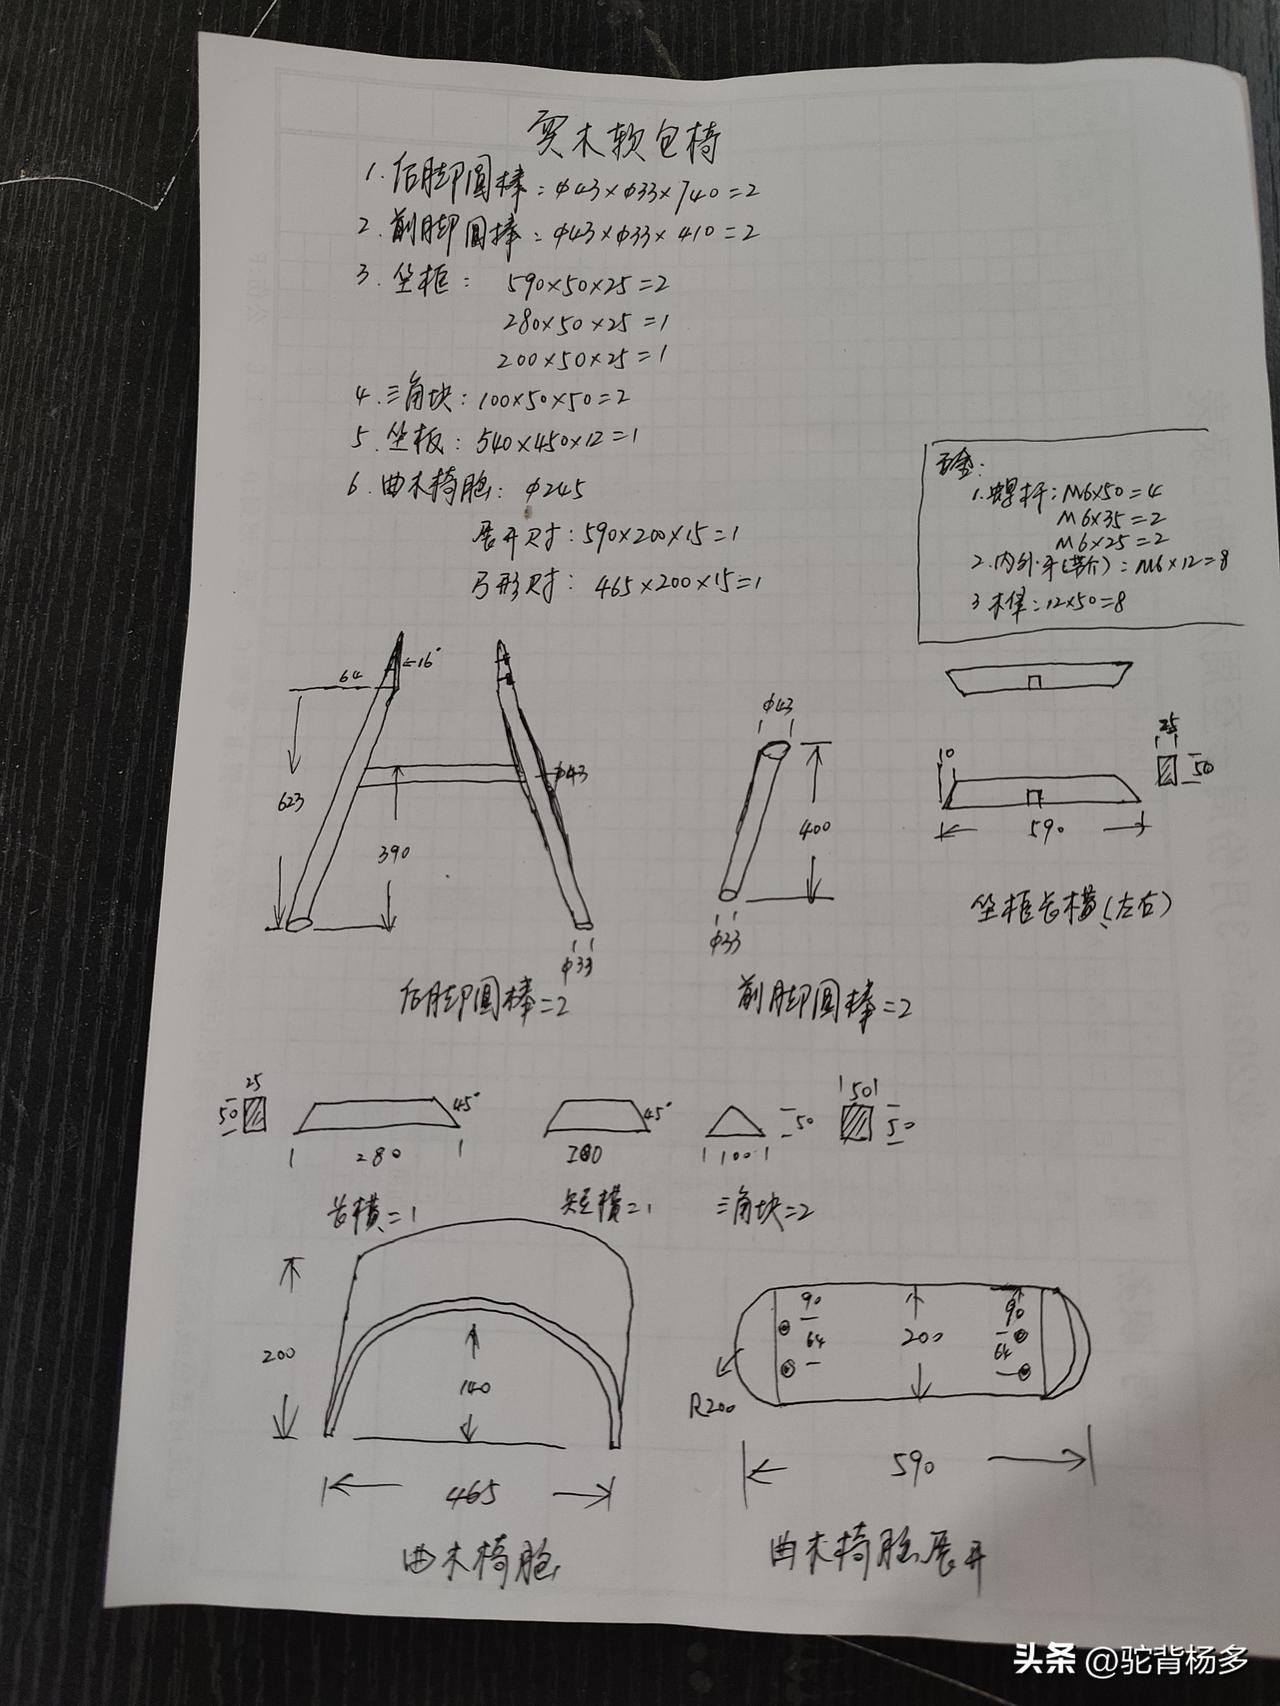 实木软包椅
1. 后脚圆棒：φ43×φ33×740=2
2. 前脚圆棒：φ43×φ33×410=2
3. 坐框： 590×50×25=2
280×50×25=1
200×50×25=1
4. 三角块：100×50×50=2
5. 坐板：540×450×12=1
6. 曲木椅腿：φ245
展开尺寸：590×200×15=1
弓形尺寸：465×200×15=1
五金：
1. 螺杆：M6×50=4
M6×35=2
M6×25=2
2. 内外牙(带介)：M6×12=8
3 木榫：12×50=8
64
16°
623
390
φ43
φ33
后脚圆棒=2
φ43
400
φ33
前脚圆棒=2
25
50
10
590
坐框长横(左右)
25
50
45°
280
长横=1
45°
短横=1
50
100
三角块=2
50
50
200
140
465
曲木椅腿
90
64
200
90
64
R200
590
曲木椅腿展开
头条 @驼背杨多